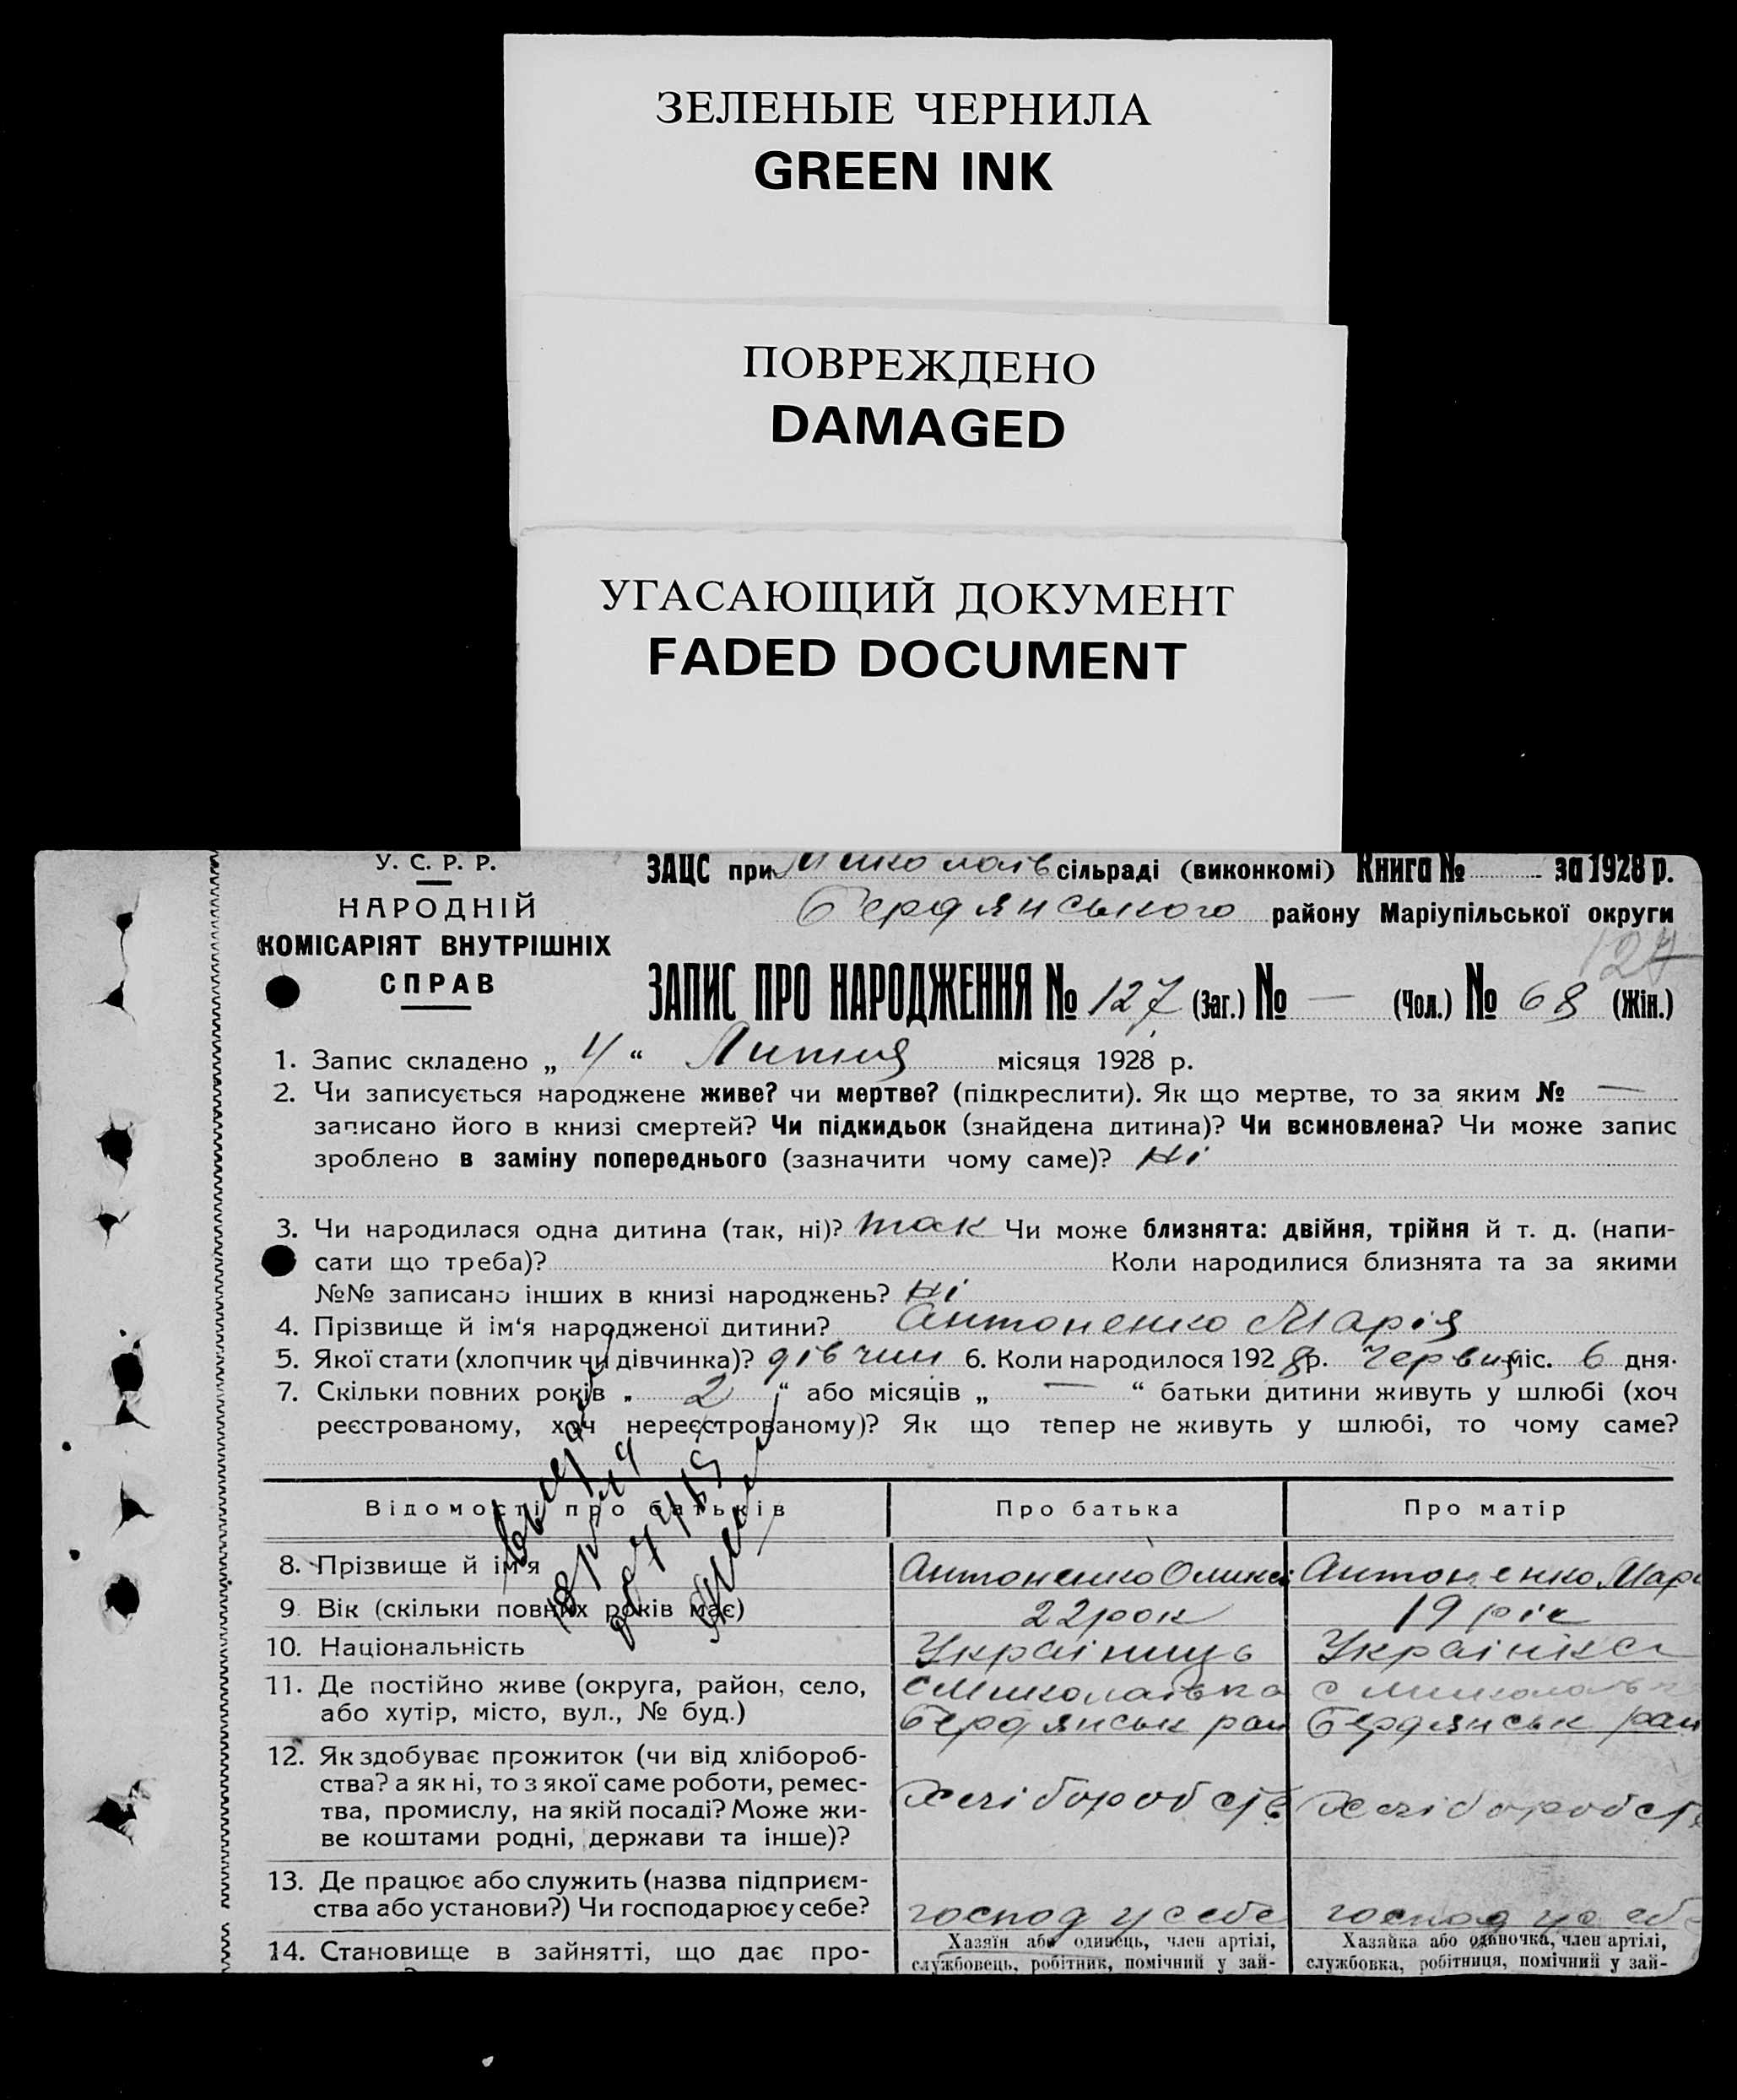 ЗЕЛЕНЫЕ ЧЕРНИЛА
GREEN INK
ПОВРЕЖДЕНО
DAMAGED
УГАСАЮЩИЙ ДОКУМЕНТ
FADED DOCUMENT
У. С. Р. Р.
НАРОДНІЙ
КОМІСАРІЯТ ВНУТРІШНІХ
СПРАВ
ЗАЦС при Миколаїв сільраді (виконкомі) Книга № за 1928 р.
Бердянського району Маріупільської округи
ЗАПИС ПРО НАРОДЖЕННЯ № 127 (Заг.) № — (Чол.) № 68 (Жін.)
1. Запис складено „ 4 “ Липня місяця 1928 р.
2. Чи записується народжене живе? чи мертве? (підкреслити). Як що мертве, то за яким № —
записано його в книзі смертей? Чи підкидьок (знайдена дитина)? Чи всиновлена? Чи може запис
зроблено в заміну попереднього (зазначити чому саме)? Ні
3. Чи народилася одна дитина (так, ні)? так Чи може близнята: двійня, трійня й т. д. (напи-
сати що треба)? Коли народилися близнята та за якими
№№ записано інших в книзі народжень? Ні
4. Прізвище й ім‘я народженої дитини? Антоненко Марія
5. Якої стати (хлопчик чи дівчинка)? дівчин 6. Коли народилося 1928 р. Червня міс. 6 дня.
7. Скільки повних років „ 2 “ або місяців „ — “ батьки дитини живуть у шлюбі (хоч
реєстрованому, хоч нереєстрованому)? Як що тепер не живуть у шлюбі, то чому саме?
Відомості про батьків Про батька Про матір
8. Прізвище й ім‘я Антоненко Антоненко Мар
9. Вік (скільки повних років має) 22 рок 19 рік
10. Національність Україниць Українка
11. Де постійно живе (округа, район, село, с Миколаївка с Миколаївк
або хутір, місто, вул., № буд.) Бердянськ рай Бердянськ рай
12. Як здобуває прожиток (чи від хлібороб-
ства? а як ні, то з якої саме роботи, ремес-
тва, промислу, на якій посаді? Може жи- хліборобств хліборобств
ве коштами родні, держави та інше)?
13. Де працює або служить (назва підприєм-
ства або установи?) Чи господарює у себе? господ у себе господ у себе
14. Становище в зайнятті, що дає про- Хазяїн або одинець, член артілі, Хазяйка або одиночка, член артілі,
службовець, робітник, помічний у зай- службовка, робітниця, помічний у зай-